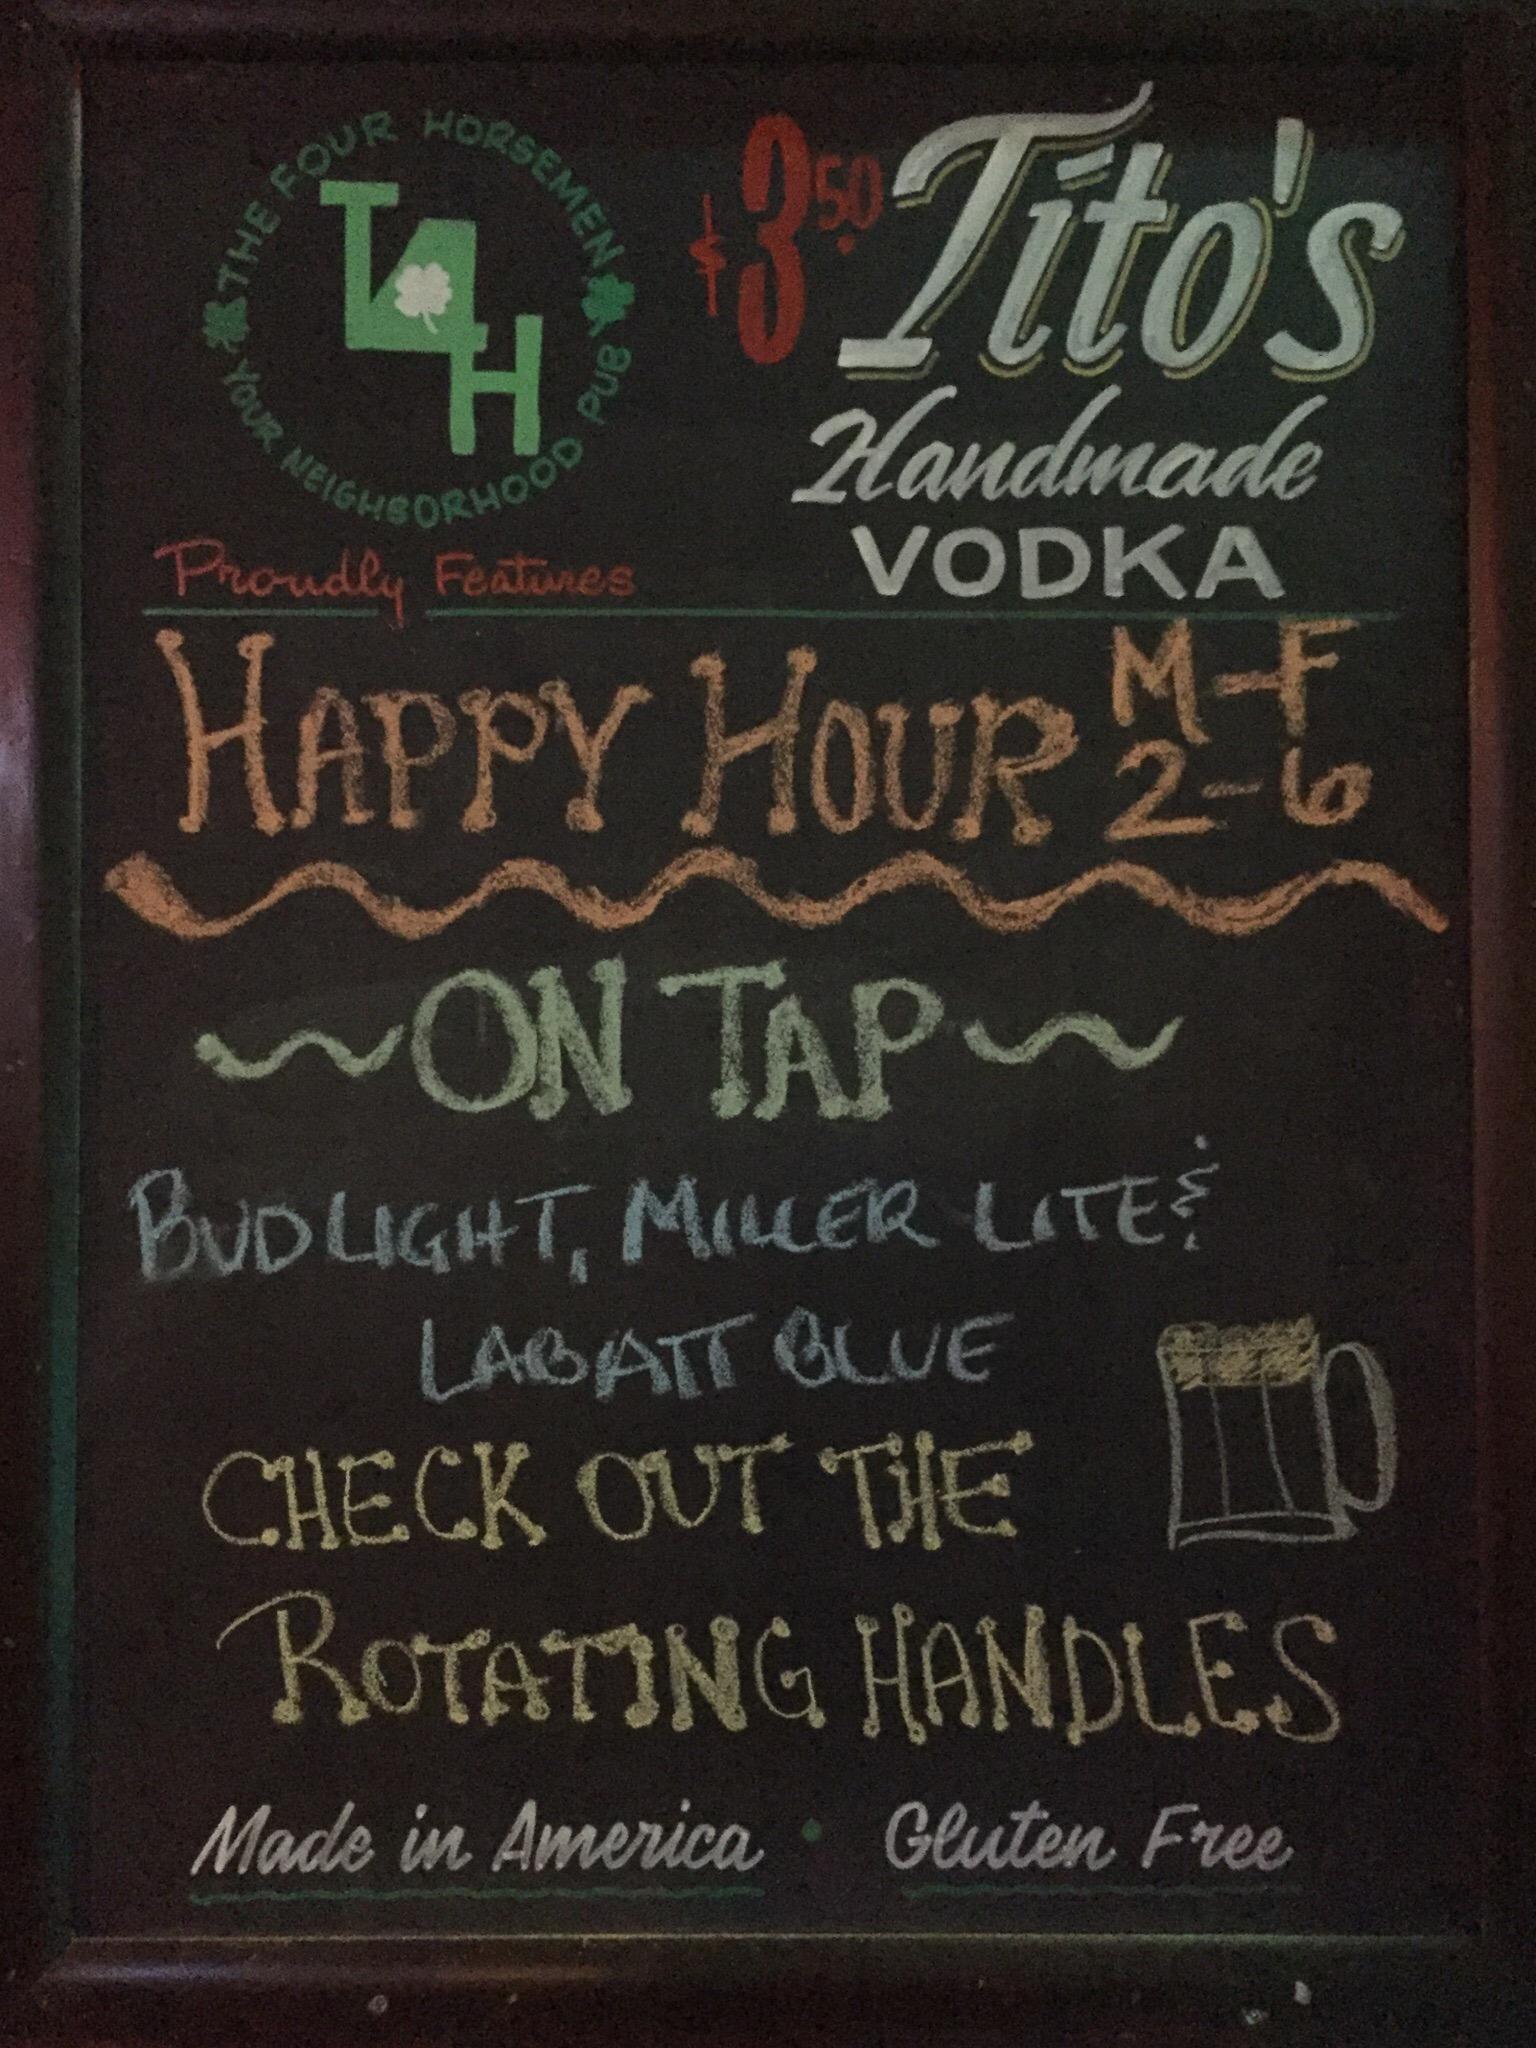 THE FOUR HORSEMEN
T4H
YOUR NEIGHBORHOOD PUB
Proudly Features
$3.50 Tito's
Handmade
VODKA
HAPPY HOUR M-F
2-6
~ON TAP~
BUD LIGHT, MILLER LITE &
LABATT BLUE
CHECK OUT THE
ROTATING HANDLES
Made in America • Gluten Free